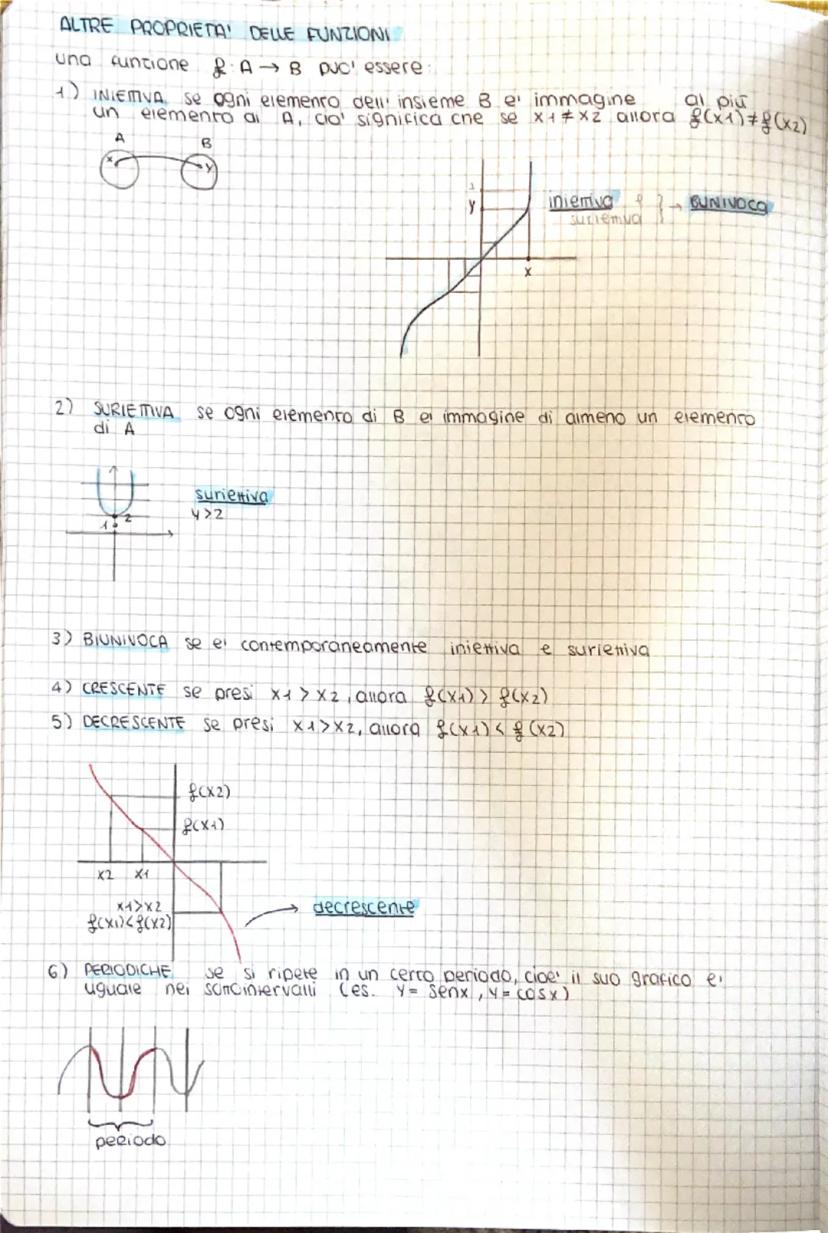 ALTRE PROPRIETA' DELLE FUNZIONI
una funzione f: A → B puo' essere:
1) INIETTIVA se ogni elemento dell'insieme B e' immagine al più
un elemento di A, cio' significa che se x1 ≠ x2 allora f(x1) ≠ f(x2)
A B
x y
y
x
iniettiva e } → BIUNIVOCA
suriettiva
2) SURIETTIVA se ogni elemento di B e' immagine di almeno un elemento
di A
suriettiva
y>2
1 2
3) BIUNIVOCA se e' contemporaneamente iniettiva e suriettiva
4) CRESCENTE se presi x1 > x2, allora f(x1) > f(x2)
5) DECRESCENTE se presi x1 > x2, allora f(x1) < f(x2)
f(x2)
f(x1)
x2 x1
x1 > x2
f(x1) < f(x2)
decrescente
6) PERIODICHE se si ripete in un certo periodo, cioe' il suo grafico e'
uguale nei sottointervalli (es. y = senx, y = cosx)
periodo